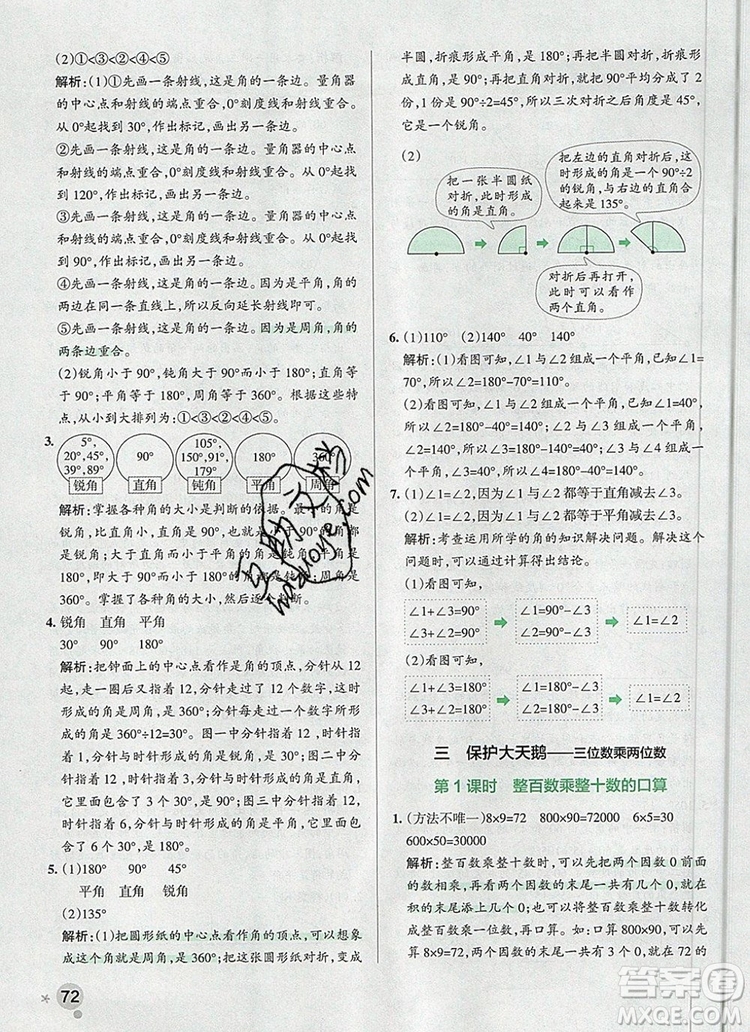 (2)①<③<②<④<⑤
解析:(1)①先画一条射线,这是角的一条边。量角器
的中心点和射线的端点重合,0°刻度线和射线重合,
从0°起找到30°,作出标记,画出另一条边。
②先画一条射线,这是角的一条边。量角器的中心点
和射线的端点重合,0°刻度线和射线重合,从0°起找
到120°,作出标记,画出另一条边。
③先画一条射线,这是角的一条边。量角器的中心点
和射线的端点重合,0°刻度线和射线重合,从0°起找
到90°,作出标记,画出另一条边。
④先画一条射线,这是角的一条边。因为是平角,角的
两边在同一条直线上,所以反向延长射线即可。
⑤先画一条射线,这是角的一条边。因为是周角,角的
两条边重合。
(2)锐角小于90°,钝角大于90°而小于180°,直角等
于90°;平角等于180°,周角等于360°。根据这些特
点,从小到大排列为:①<③<②<④<⑤。
3. 5°, 20°,45°, 39°,89° 锐角
90° 直角
105°, 150°,91°, 179° 钝角
180° 平角
360° 周角
解析:掌握各种角的大小是判断的依据。
角,比直角小,直角是90°,
180°
360°。掌握了各种角的大小,然后逐个判断。
4. 锐角 直角 平角
30° 90° 180°
解析:把钟面上的中心点看作是角的顶点,从12
起,画一个圆圈又回到12,可以想象成一个周角,这时
形成的角是360°;分针每走一个数字所形成的角的度
数是360°÷12=30°。图一中分针指着12,时针指着
1,分针与时针形成的角是锐角,是30°;图二中分针
指着12,时针指着3,分针与时针所形成的角是直角,
是90°;图三中分针指着12,时针指着6,分针与时针
所形成的角是平角,是180°。
5. (1)180° 90° 45°
平角 直角 锐角
(2)135°
解析:(1)把圆形纸的中心点看作角的顶点,可以想象
成这个角就是周角,是360°;把这张圆形纸对折,变成
72
半圆,折痕形成平角,是180°;再把这个半圆对折,折痕
形成直角,是90°;再把直角对折,就把90°平均分成了2
份,1份是90°÷2=45°,所以三次对折之后的角度是45°,
它是一个锐角。
(2)
把一张半圆纸
对折,此时形成
的角是直角。
把左边的直角对折后,这
时形成的角是一个90°÷2
的锐角,与右边的直角合
起来是135°。
对折后再打开,
此时可以看作
两个直角。
6. (1)110° (2)140° 40° 140°
解析:(1)看图可知,∠1与∠2组成一个平角,已知∠1=
70°,所以∠2=180°-70°=110°。
(2)看图可知,∠1与∠2组成一个平角,已知∠1=40°,
所以∠2=180°-40°=140°。∠2与∠3组成一个平角,
∠2=140°,所以∠3=180°-140°=40°。∠1与∠4组成
一个平角,∠1=40°,所以∠4=180°-40°=140°。
7. (1)∠1=∠2,因为∠1与∠2都等于直角减去∠3。
(2)∠1=∠2,因为∠1与∠2都等于平角减去∠3。
解析:考查运用所学的角的知识解决问题。解决这个
问题时,可以通过计算得出结论。
(1)看图可知:
∠1+∠3=90° ∠1=90°-∠3 ∠1=∠2
∠2+∠3=90° ∠2=90°-∠3
(2)看图可知:
∠1+∠3=180° ∠1=180°-∠3 ∠1=∠2
∠2+∠3=180° ∠2=180°-∠3
三 保护大天鹅——三位数乘两位数
第1课时 整百数乘整十数的口算
1. (方法不唯一)8×9=72 800×90=72000 6×5=30
600×50=30000
解析:整百数乘整十数的口算,可以先把两个因数0前面
的数相乘,再看两个因数的末尾一共有几个0,就在
积的末尾添几个0。或者把整百数乘整十数转化
成整百数乘一位数,再口算。如:口算800×90,可以先口
算8×9=72,两个因数的末尾一共有3个0,在72的
答案圈
MXQE.COM